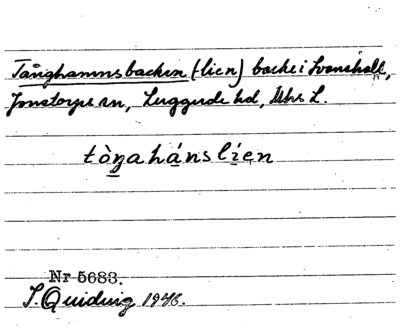 Tånghamnsbacken (-lien) backe i Svanshall,
Jonstorps sn, Luggude hd, Mhs L.
tòŋahánslien
Nr 5683.
S. Quiding 1946.